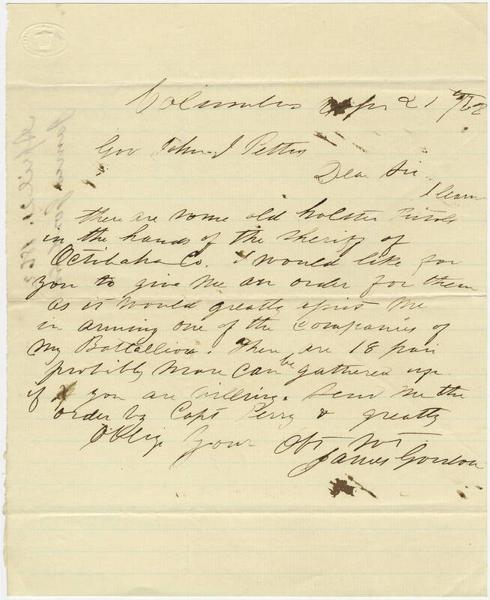 Columbus Apr 21st/62
Gov John J Pettus
Dear Sir
I learn
there are some old holster Pistols
in the hands of the sheriff of
Octibaha Co. I would like for
you to give me an order for them
as it would greatly assist me
in arming one of the companies of
my Battallion. There are 18 pair
probibly more can be gathered up
if you are willing. Send me the
order by Capt Perry & greatly
oblige Your Obt Svt
James Gordon